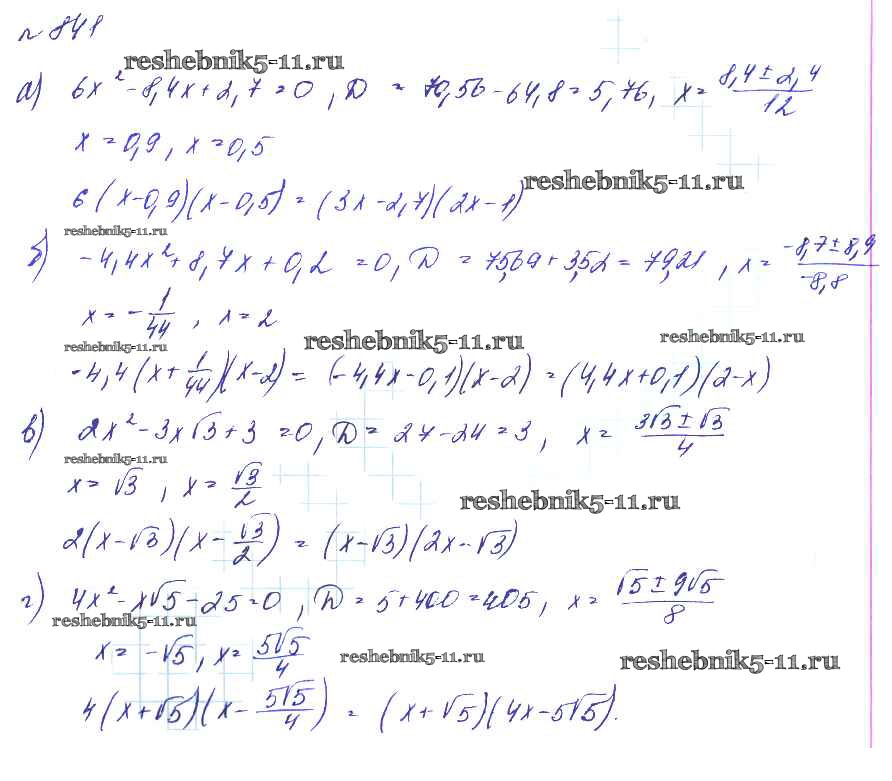 № 841
reshebnik5-11.ru
а) 6x² - 8,4x + 2,7 = 0, D = 70,56 - 64,8 = 5,76, x = (8,4 ± 2,4)/12
x = 0,9, x = 0,5
6(x - 0,9)(x - 0,5) = (3x - 2,7)(2x - 1)
reshebnik5-11.ru
reshebnik5-11.ru
б) -4,4x² + 8,7x + 0,2 = 0, D = 75,69 + 3,52 = 79,21, x = (-8,7 ± 8,9)/-8,8
x = -1/44, x = 2
reshebnik5-11.ru
reshebnik5-11.ru
reshebnik5-11.ru
-4,4(x + 1/44)(x - 2) = (-4,4x - 0,1)(x - 2) = (4,4x + 0,1)(2 - x)
в) 2x² - 3x√3 + 3 = 0, D = 27 - 24 = 3, x = (3√3 ± √3)/4
reshebnik5-11.ru
x = √3, x = √3/2
reshebnik5-11.ru
2(x - √3)(x - √3/2) = (x - √3)(2x - √3)
г) 4x² - x√5 - 25 = 0, D = 5 + 400 = 405, x = (√5 ± 9√5)/8
reshebnik5-11.ru
x = -√5, x = 5√5/4
reshebnik5-11.ru
reshebnik5-11.ru
4(x + √5)(x - 5√5/4) = (x + √5)(4x - 5√5).